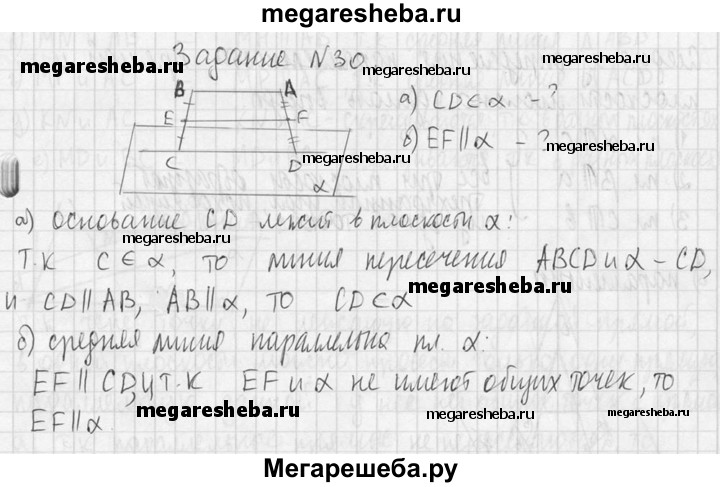 megaresheba.ru
Задание N30
megaresheba.ru
megaresheba.ru
B A
megaresheba.ru
а) CD⊂α - ?
E F
б) EF∥α - ?
megaresheba.ru
C D
megaresheba.ru
α
а) основание CD лежит в плоскости α:
megaresheba.ru
т.к C∈α, то линия пересечения ABCD и α - CD,
megaresheba.ru
и CD∥AB, AB∥α, то CD⊂α
б) средняя линия параллельна пл. α:
EF∥CD, и т.к EF и α не имеют общих точек, то
megaresheba.ru
megaresheba.ru
megaresheba.ru
EF∥α.
Мегарешеба.ру